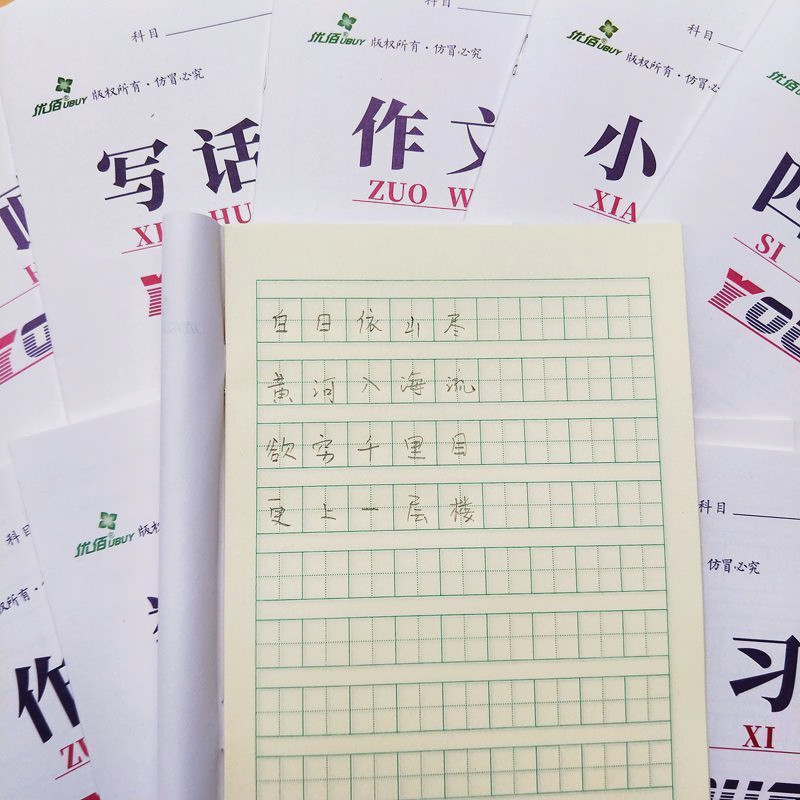 科目
科目
科目
优佰®UBUY 版权所有·仿冒必究
优佰®UBUY 版权所有·仿冒必究
优佰®UBUY 版权所有·仿冒必究
优佰
写话
作文
ZUO W
小
XIA
四
SI
HU
YOU
白日依山尽
黄河入海流
欲穷千里目
更上一层楼
科目
优佰®UBUY 版权
权所有·
作
ZU
科目
仿冒必究
习
XI